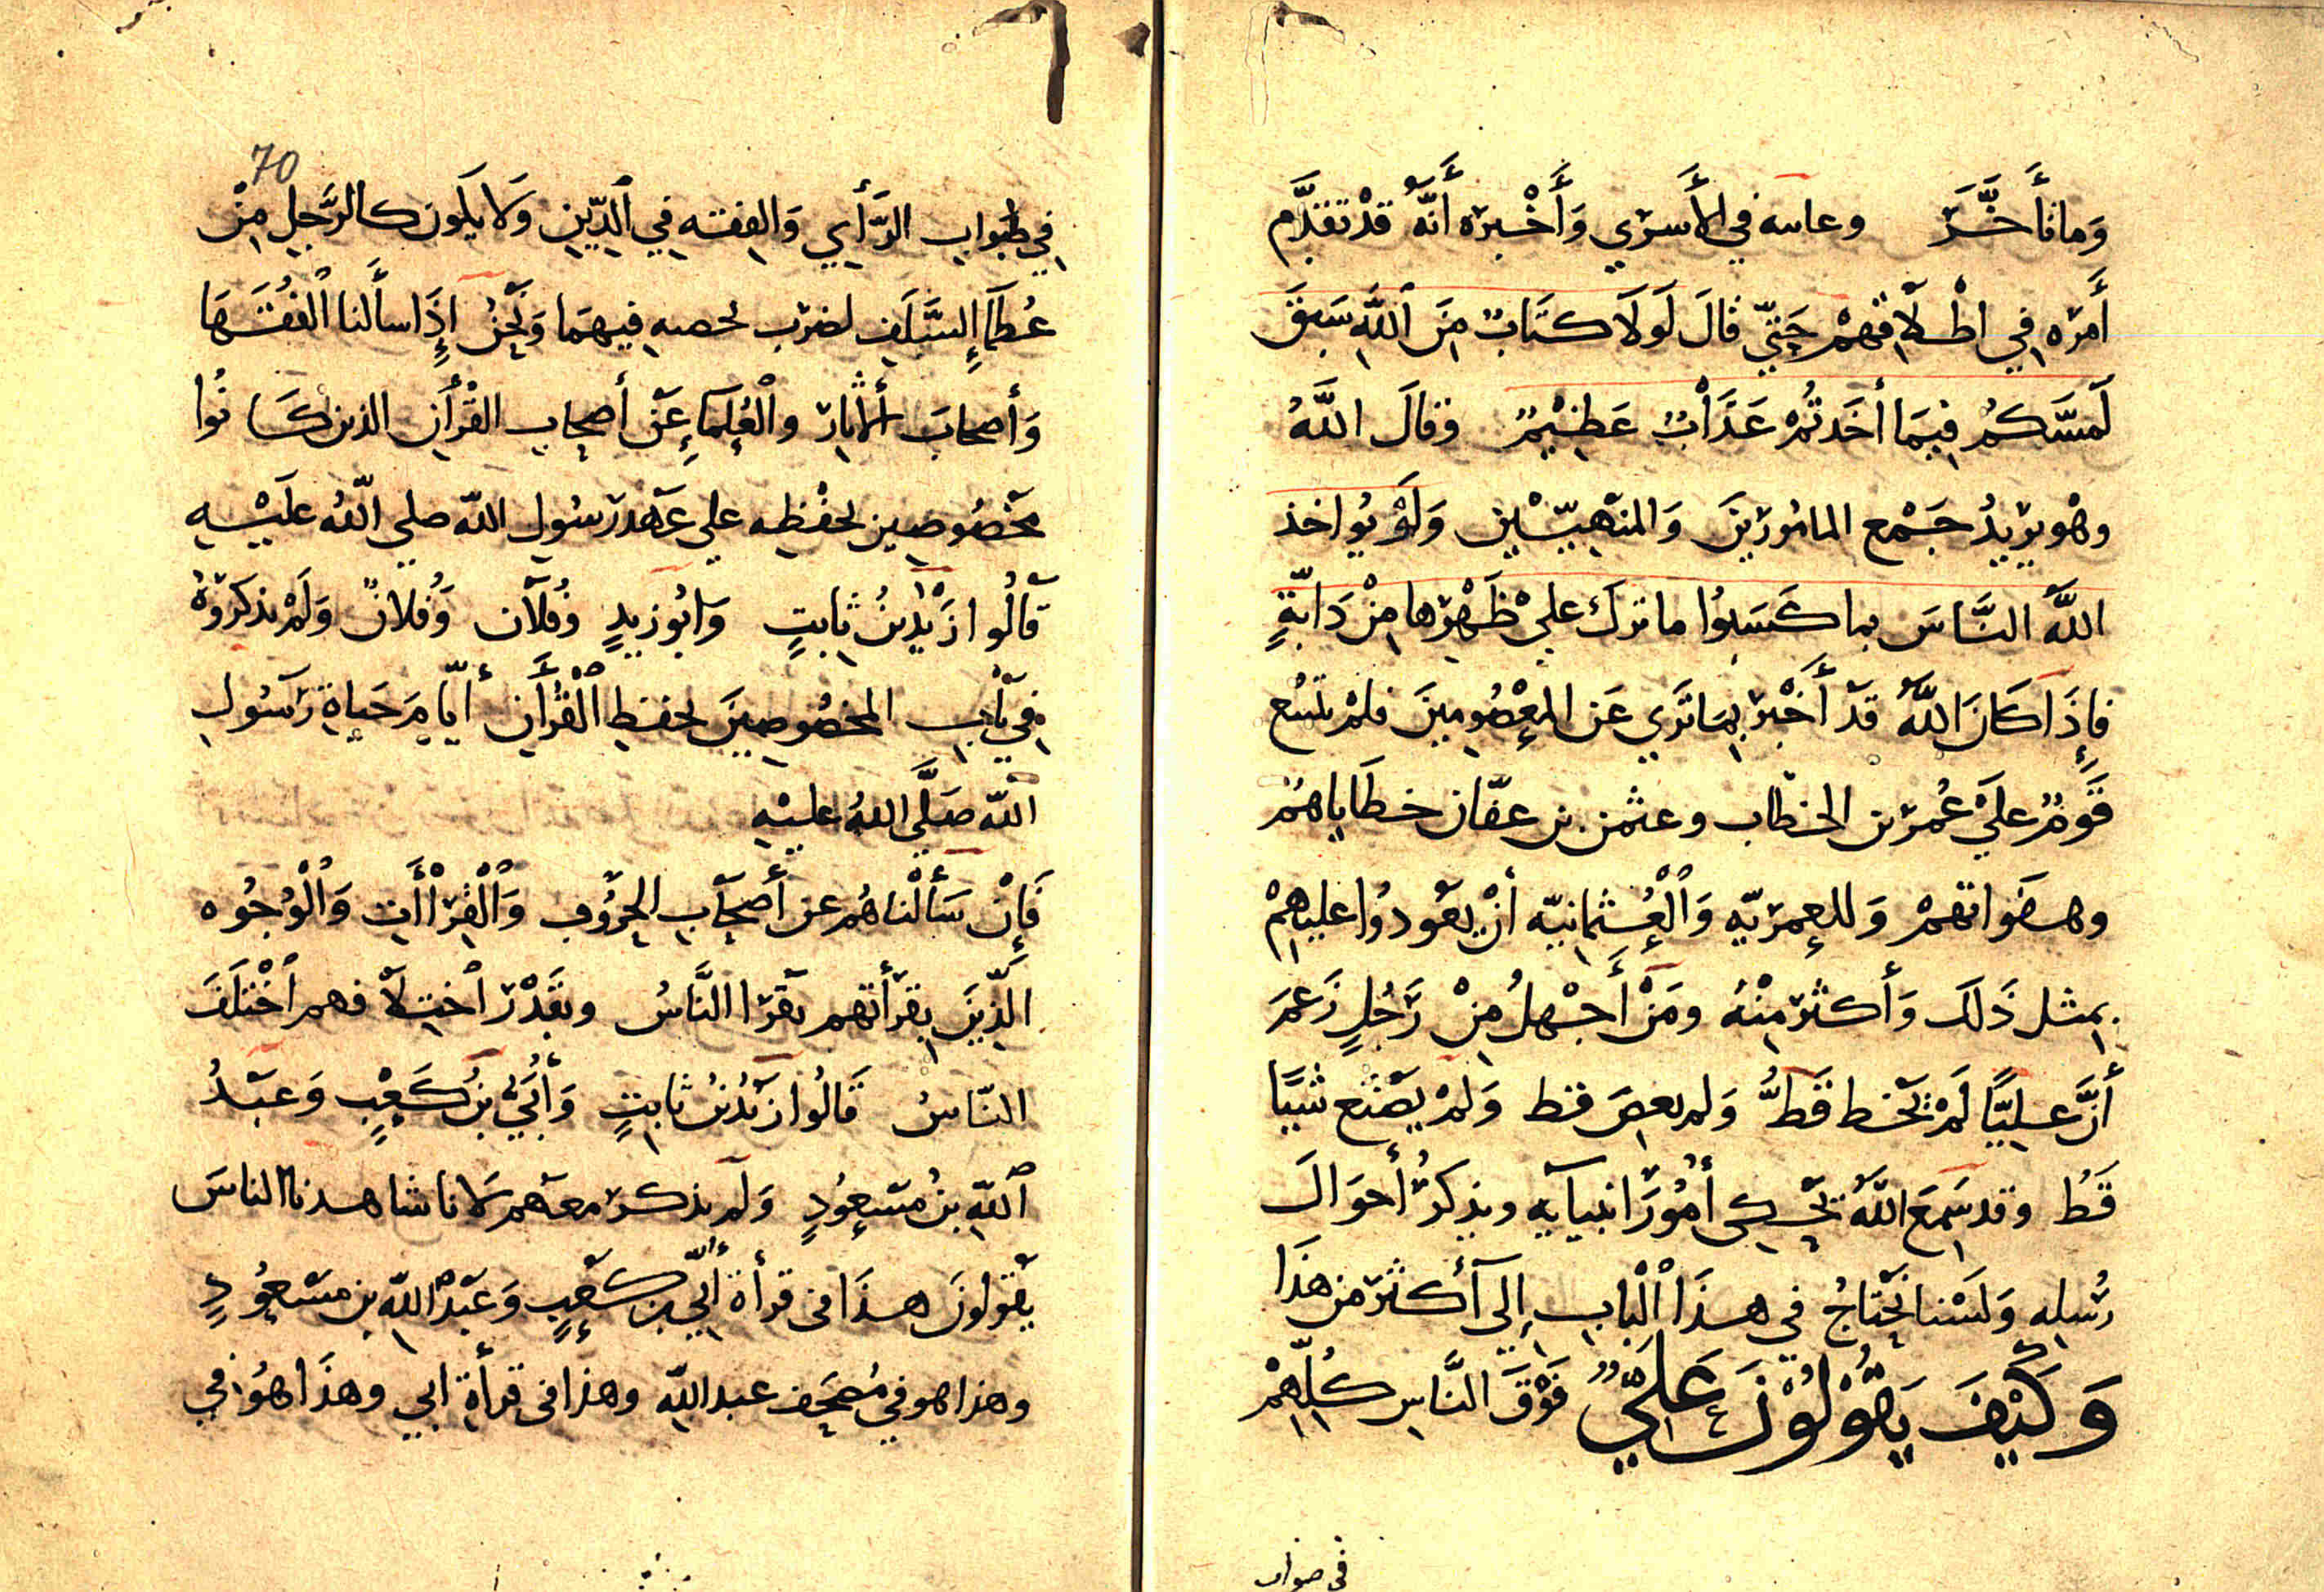 وَما تأَخَّرَ وعاتبه في الأَسرَي وَأَخْبره أَنَّهُ قدْ تقدَّم
أَمرَه في اطْلاَقهمْ حَتّي قالَ لَوَلاَ كتَابٌ مِنَ ٱللَّهِ سَبَقَ
لَمسَّكمُ فِيمَا أخَذتُمْ عَذَاْبٌ عَظِيْمٌ وقالَ اللَّهُ
وهْو يرَيدُ جَمْع المامُورَينَ وَالمنَهيّيْنِ وَلَوْ يُواخذ
اللَّهُ النَّاسَ بما كَسَبُوا ما ترك عليْ ظَهْرِها مِنْ دَابّةٍ
فإِذَا كَانَ اللَّهُ قدَ أَخْبَرَ بِمَا تَرَي عَن المعْصُومِينَ فلمْ تمنع
قَومٌ عليَ عُمرَ بن الخطاب وعثمن بن عفّان خطَاياهمُ
وهَفَواتهمْ وَللعِمرَيّه وَٱلْعُثمانِيّه أنْ يعَودُوا عليهِمْ
بِمثل ذَلكَ وَأَكثرَ مِنْهُ ومَنْ أَجْهلُ مِنْ رَجُلٍ زَعمَ
أنَّ عليًّا لَمْ يخَط قَطُّ وَلم يعصَ قط وَلمْ يصَنع شيًا
قَطُ وقد سَمِعَ اللَّهَ يحَكي أُمُورَ انبيآيه ويذكرُ أَحوَالَ
رُسُلهِ وَلسَْنا نحَتاجُ في هذَا ٱلْبابِ إِلى أَكثرَ من هذَا
وَكَيْفَ يقُولُوْنَ عَليٌّ فَوْقَ النَّاسِ كلِّهِمْ
في صواب
70
فِي صَوابِ الرَّأيِ وَالفقه فِي ٱلدِّينِ وَلا يكَون كالرَّجلِ مِنْ
عُظمآإِ السَّلَفِ لضرَب فيهمَا وَنحَنُ إِذَا سأَلنا ٱلفُقَهَا
وَأَصحابَ ٱلأَثارَ والْعُلمَآءِ عَن أصحابِ القُرْأَنِ الذين كَانُوا
مخصُوصِين بحفْظِهِ علي عَهَد رَسُولِ اللّه صلي اللّهُ عليَْهِ
قالُوا زَيْدُ بْنُ ثابتٍ وَابُو زَيدٍ وَفُلآن وَفُلانٌ وَلَمْ يذكرَوهُ
فِي بَابِ المخصُوصِينَ بحفظِ ٱلْقُرْأَنِ أيّامَ حَياةِ رَسُولِ
اللّه صَلَّي اللهُ عليْهِ
فَإِنْ سَأَلْناهُم عن أَصحَابِ الحرُوفِ وَٱلْقِرَاْأَتِ وَٱلْوُجُوه
الّذِينَ بقِرَأَتهم يقَرَا النَّاسُ وبقَدْرَ ٱختِلاَفهم ٱخْتَلَفَ
النّاسُ قَالُوا زَيدُ بْنُ ثَابتٍ وَأُبَيّ بْنُ كَعْبٍ وَعَبْدُ
ٱللّهِ بنُ مَسْعُودٍ وَلَم يذكرَ معهَم لانا شاهدنا الناسَ
يقُولونَ هذَا في قرأة أُبيّ بن كعْبٍ وَعَبْدُ اللّهِ بن مسْعُودٍ
وهذا هو في مُصحَف عبد اللّهِ وهذا في قرأةِ ابي وهذَا هوُ في